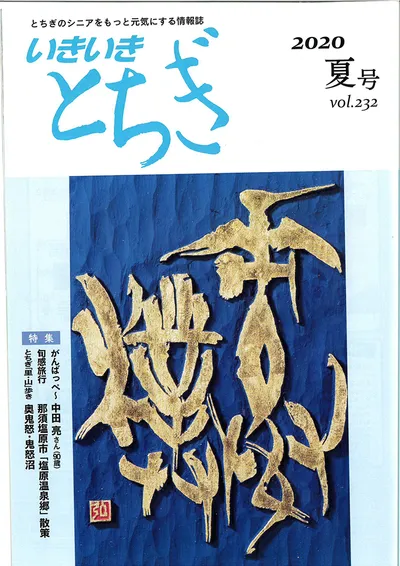 とちぎのシニアをもっと元気にする情報誌
いきいき
とちぎ
2020
夏号
vol.232
特集
がんばっぺ~ 中田 亮さん(90歳)
旬感旅行 那須塩原市「塩原温泉郷」散策
とちぎ里・山歩き 奥鬼怒・鬼怒沼
弘